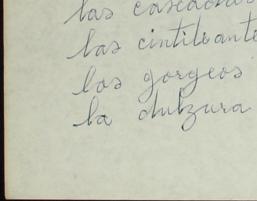 las cascadas
las cintilante
los gorgeos
la dulzura